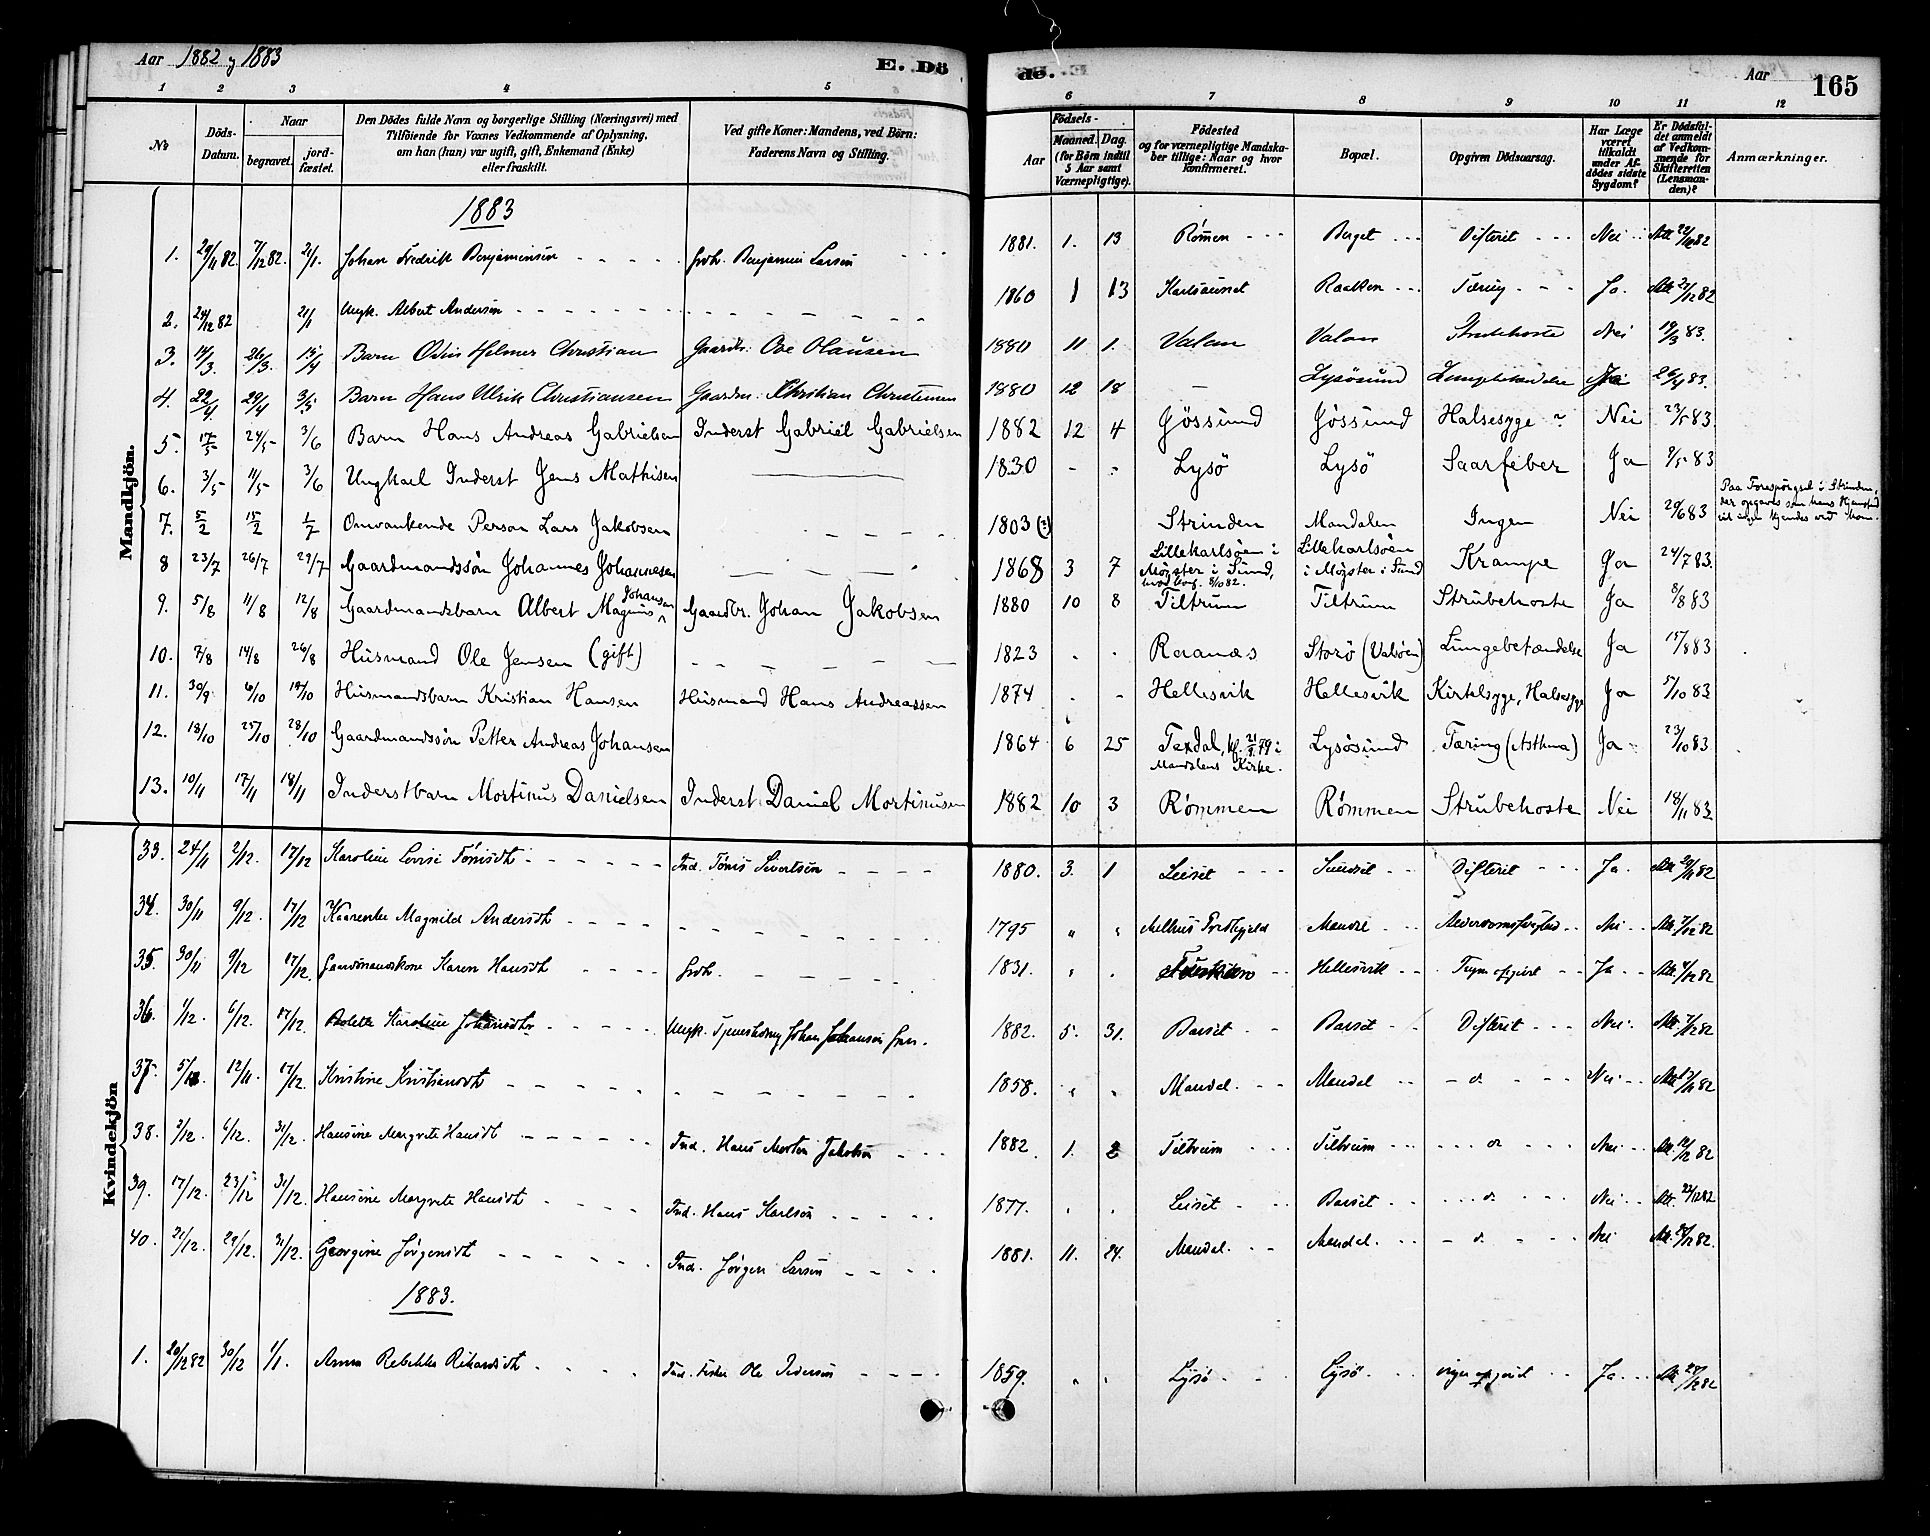 Aar 1882 y 1883 E. Dö de. Aar 165
1 2 3 4 5 6 7 8 9 10 11 12
№ Döds-Datum. Naar begravet. jord-fæstet. Den Dödes fulde Navn og borgerlige Stilling (Næringsvei) med Tilföiende for Voxnes Vedkommende af Oplysning, om han (hun) var ugift, gift, Enkemand (Enke) eller fraskilt. Ved gifte Koner: Mandens, ved Börn: Faderens Navn og Stilling. Födsels- Aar Maaned. Dag. (for Börn indtil 5 Aar samt Værnepligtige). Födested og for værnepligtige Mandskaber tillige: Naar og hvor konfirmeret. Bopæl. Opgiven Dödsaarsag. Har Læge været tilkaldt under Afdödes sidste Sygdom? Er Dödsfaldet anmeldt af Vedkommende for Skifteretten (Lensmanden)? Anmærkninger.
Mandkjön.
1883
1. 29/11 82. 7/12 82. 21/1. Johan Fredrik Benjaminsen Benjamin Larsen 1881. 1. 13 Römen Berget Difterit Nei
2. 24/12 82 21/1 Ungk. Albert Andersen 1860 1 13 Karlsaunet Raaken Tæring Ja. Att 27/12 82
3. 14/3 26/3. 15/4 Barn Odin Helmer Christian Gaardbr. Ove Olausen 1880 11 1. Valan Valan Strubehoste Nei 19/3 83.
4. 22/4 29/4 3/5 Barn Hans Ulrik Christiansen Gaardm. Christian Christensen 1880 12 18 — Lysösund Lungebetændelse Ja 26/4 83.
5. 17/5 24/5 3/6 Barn Hans Andreas Gabrielsen Inderst Gabriel Gabrielsen 1882 12 4 Jössund Jössund Halsesyge Nei 23/5 83.
6. 3/5 11/5 3/6 Ungkarl Inderst Jens Mathisen 1830 - - Lysö Lysö Saarfeber Ja 9/5 83
7. 5/2 15/2 1/7 Omvankende Person Lars Jakobsen 1803 (?) Strinden Mandalen Ingen Nei 20/6 83 Paa Forespörgsel i Strinden, der opgaves som hans Hjemsted vil ingen kjendes ved ham.
8 23/7 26/7 29/7 Gaardmandssön Johannes Johannesen 1868 3 7 Lillekarlsöen i Möyster i Sund, 8/10 82. Lillekarlsöen i Möyster i Sund Krampe Ja 24/7 83.
9. 5/8 11/8 12/8 Gaardmandsbarn Albert Magnus Johansen Gaardbr. Johan Jakobsen 1880 10 8 Tiltrum Tiltrum Strubehoste Ja 8/8 83
10. 7/8 14/8 26/8 Husmand Ole Jensen (gift) 1823 . . Ramnæs Storö (Valsöen) Lungebetændelse Ja 15/8 83
11. 30/9 6/10 14/10 Husmandsbarn Kristian Hansen Husmand Hans Andreassen 1874 . - Hellesvik Hellesvik Kirtelsyge, Halsesyge Ja 5/10 83
12. 18/10 25/10 28/10 Gaardmandssön Petter Andreas Johansen 1864 6 25 Texdal, kf. 21/9 79 i Mandalens Kirke. Lysösund Tæring (Asthma) Ja 23/10 83
13. 10/11 17/11 18/11 Inderstbarn Mortinus Danielsen Inderst Daniel Mortinusen 1882 10 3 Römmen Römmen Strubehoste Nei 18/11 83
Kvindekjön
33. 24/11 2/12. 17/12 Karoline Lovise Tönisdt Ind. Tönis Sivertsen 1880. 3. 1 Leiset Sundset Difterit Ja. Att 29/11 82
34. 30/11 9/12. 17/12 Kaarenke Magnild Andersdt 1795 " " Melhus Prestegjeld Mandal Alderdomssvaghed Nei Att. 7/12 82
35. 30/11 9/12 17/12. Gaardmandskone Karen Hansdt 1831. Hellesvik Ja Att. 4/12 82
36. 1/12. 6/12. 17/12. Bolette Karoline Johansdtr Ungk. Johan Johansen 1882. 5. 31. Barset Barset Difterit Nei. Att 7/12 82
37. 5/12. 12/11. 17/12. Kristine Kristiansdt 1858. " . Mandal. Mandal - d. Nei
38. 2/12. 6/12. 31/12. Hansine Margrete Hansdt Ind. Hans Morten Jakobsen 1882 1. 2 Tiltrum Tiltrum d Nei Att. 12/12 82
39. 17/12. 23/12 31/12. Hansine Margrete Hansdt Ind. Hans Karlsen 1877. . . Leiset Barset d. Nei Att. 22/12 82
40. 21/12. 29/12. 31/12. Georgine Jörgensdt Ind. Jörgen Larsen 1881. 11. 24. Mandal. Mandal. - d. Nei
1883.
1. 20/12 82 30/12 1/1. Anna Rebekka Rikardsdt Ind. Fisker Ole Pedersen 1859. " . Lysö Lysö. ingen opgivet Ja Att 28/12 82